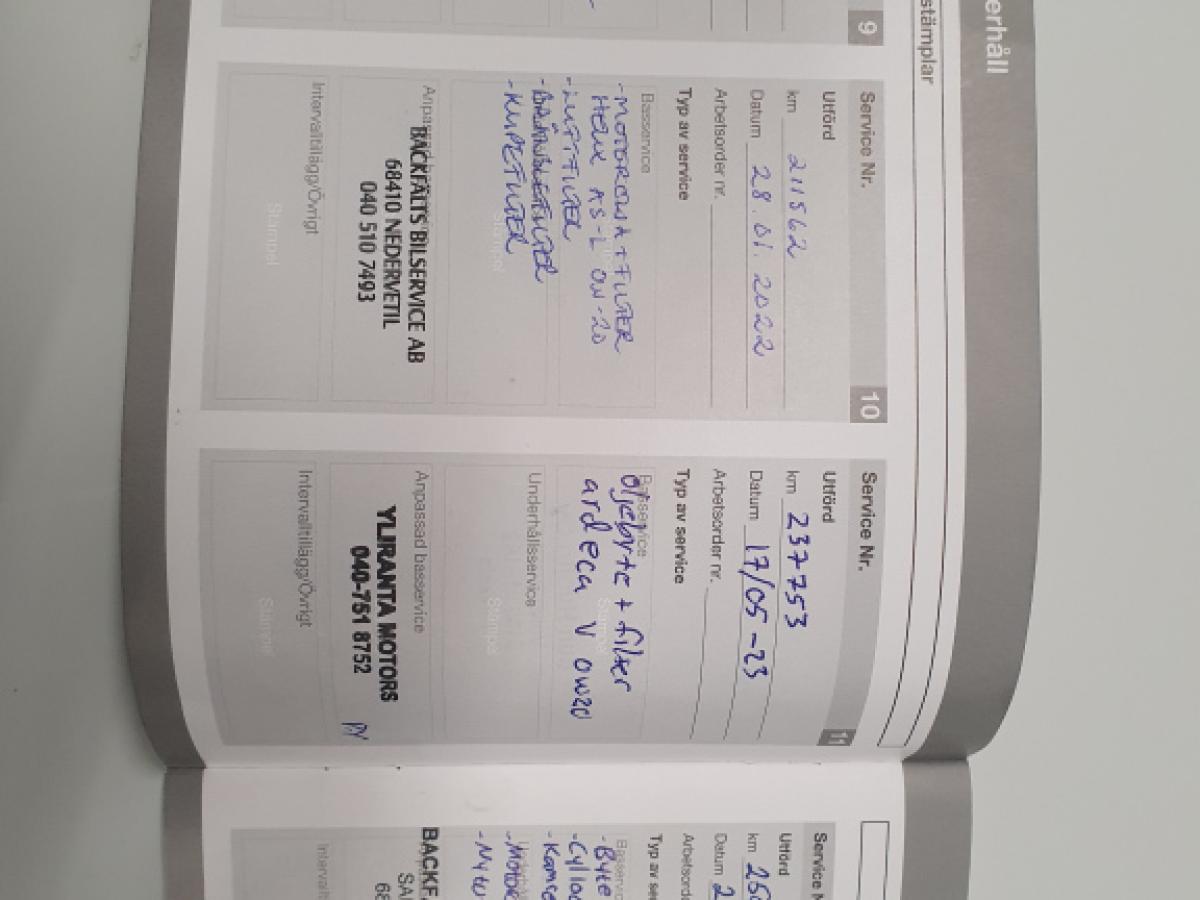 erhåll
stämplar
9
Service Nr. 10
Utförd
km 211562
Datum 28.01.2022
Arbetsorder nr.
Typ av service
Basservice
-MOTOROLJA+FILTER
HELIX AS-L 0W-20
-LUFTFILTER
-BRÄNSLEFILTER
-KUPEFILTER
Stämpel
Anpassad basservice
BACKFÄLTS BILSERVICE AB
68410 NEDERVETIL
040 510 7493
Intervalltillägg/Övrigt
Stämpel
Service Nr. 11
Utförd
km 237753
Datum 17/05-23
Arbetsorder nr.
Typ av service
Basservice
Oljebyte + filter
ardeca V 0W20
Underhållsservice
Stämpel
Anpassad basservice
YLIRANTA MOTORS
040-751 8752
Intervalltillägg/Övrigt
Stämpel
Service N
Utförd
km 250
Datum 2
Arbetsord
Typ av se
Basservic
-Byte
BACKF
SA
68
Intervallt